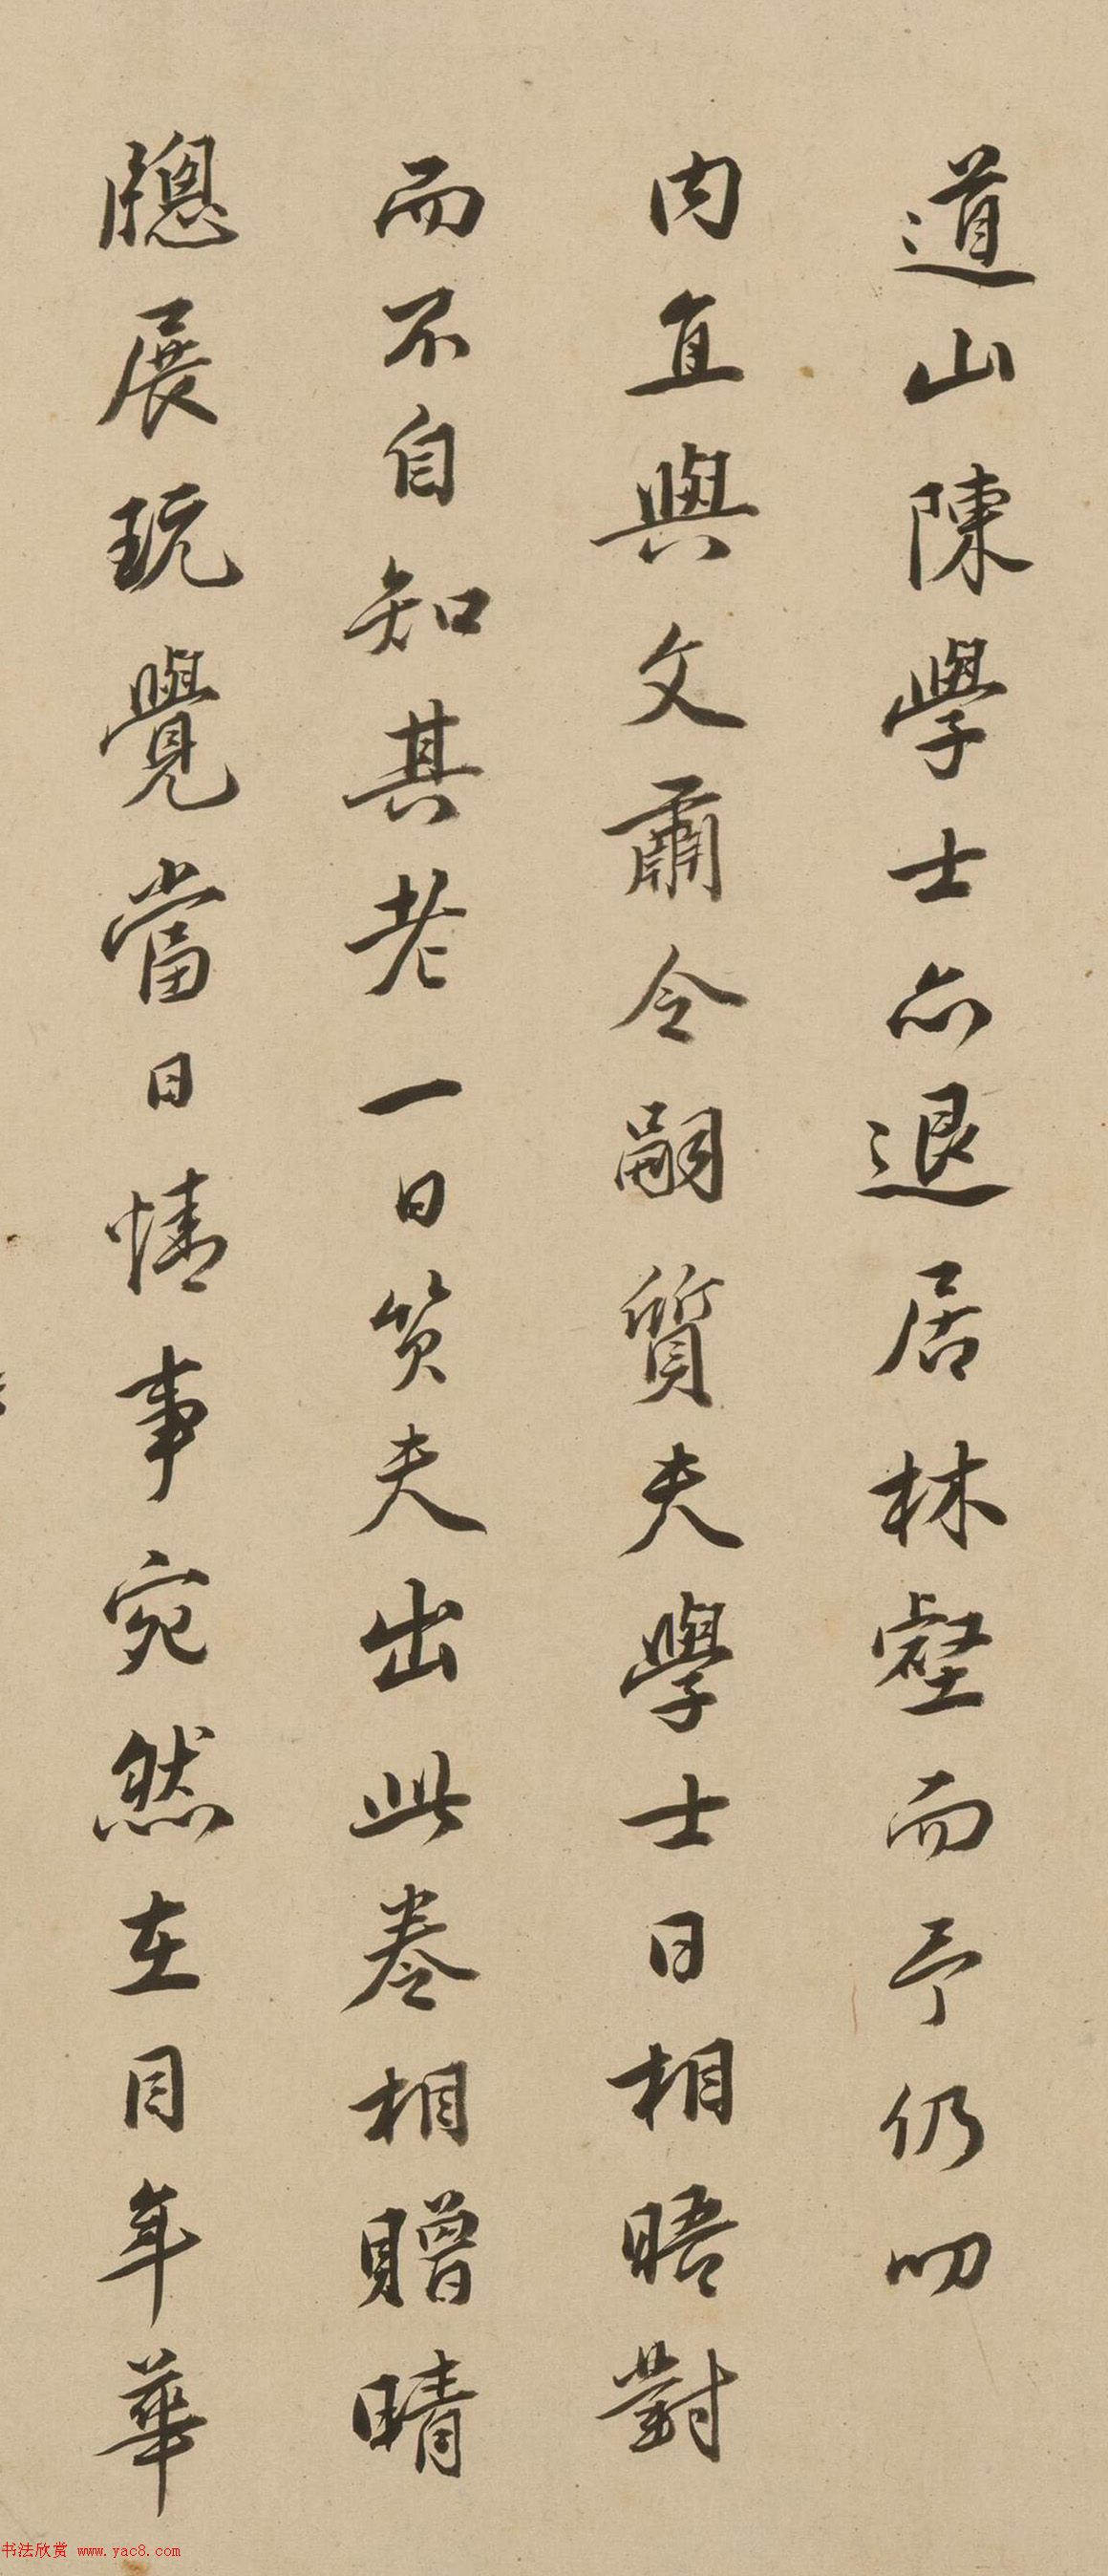 道山陳學士亦退居林壑而予仍叨
內直與文肅令嗣質夫學士日相晤對
而不自知其老一日質夫出此卷相贈晴
牕展玩覺當日情事宛然在目年華
书法欣赏 www.yac8.com